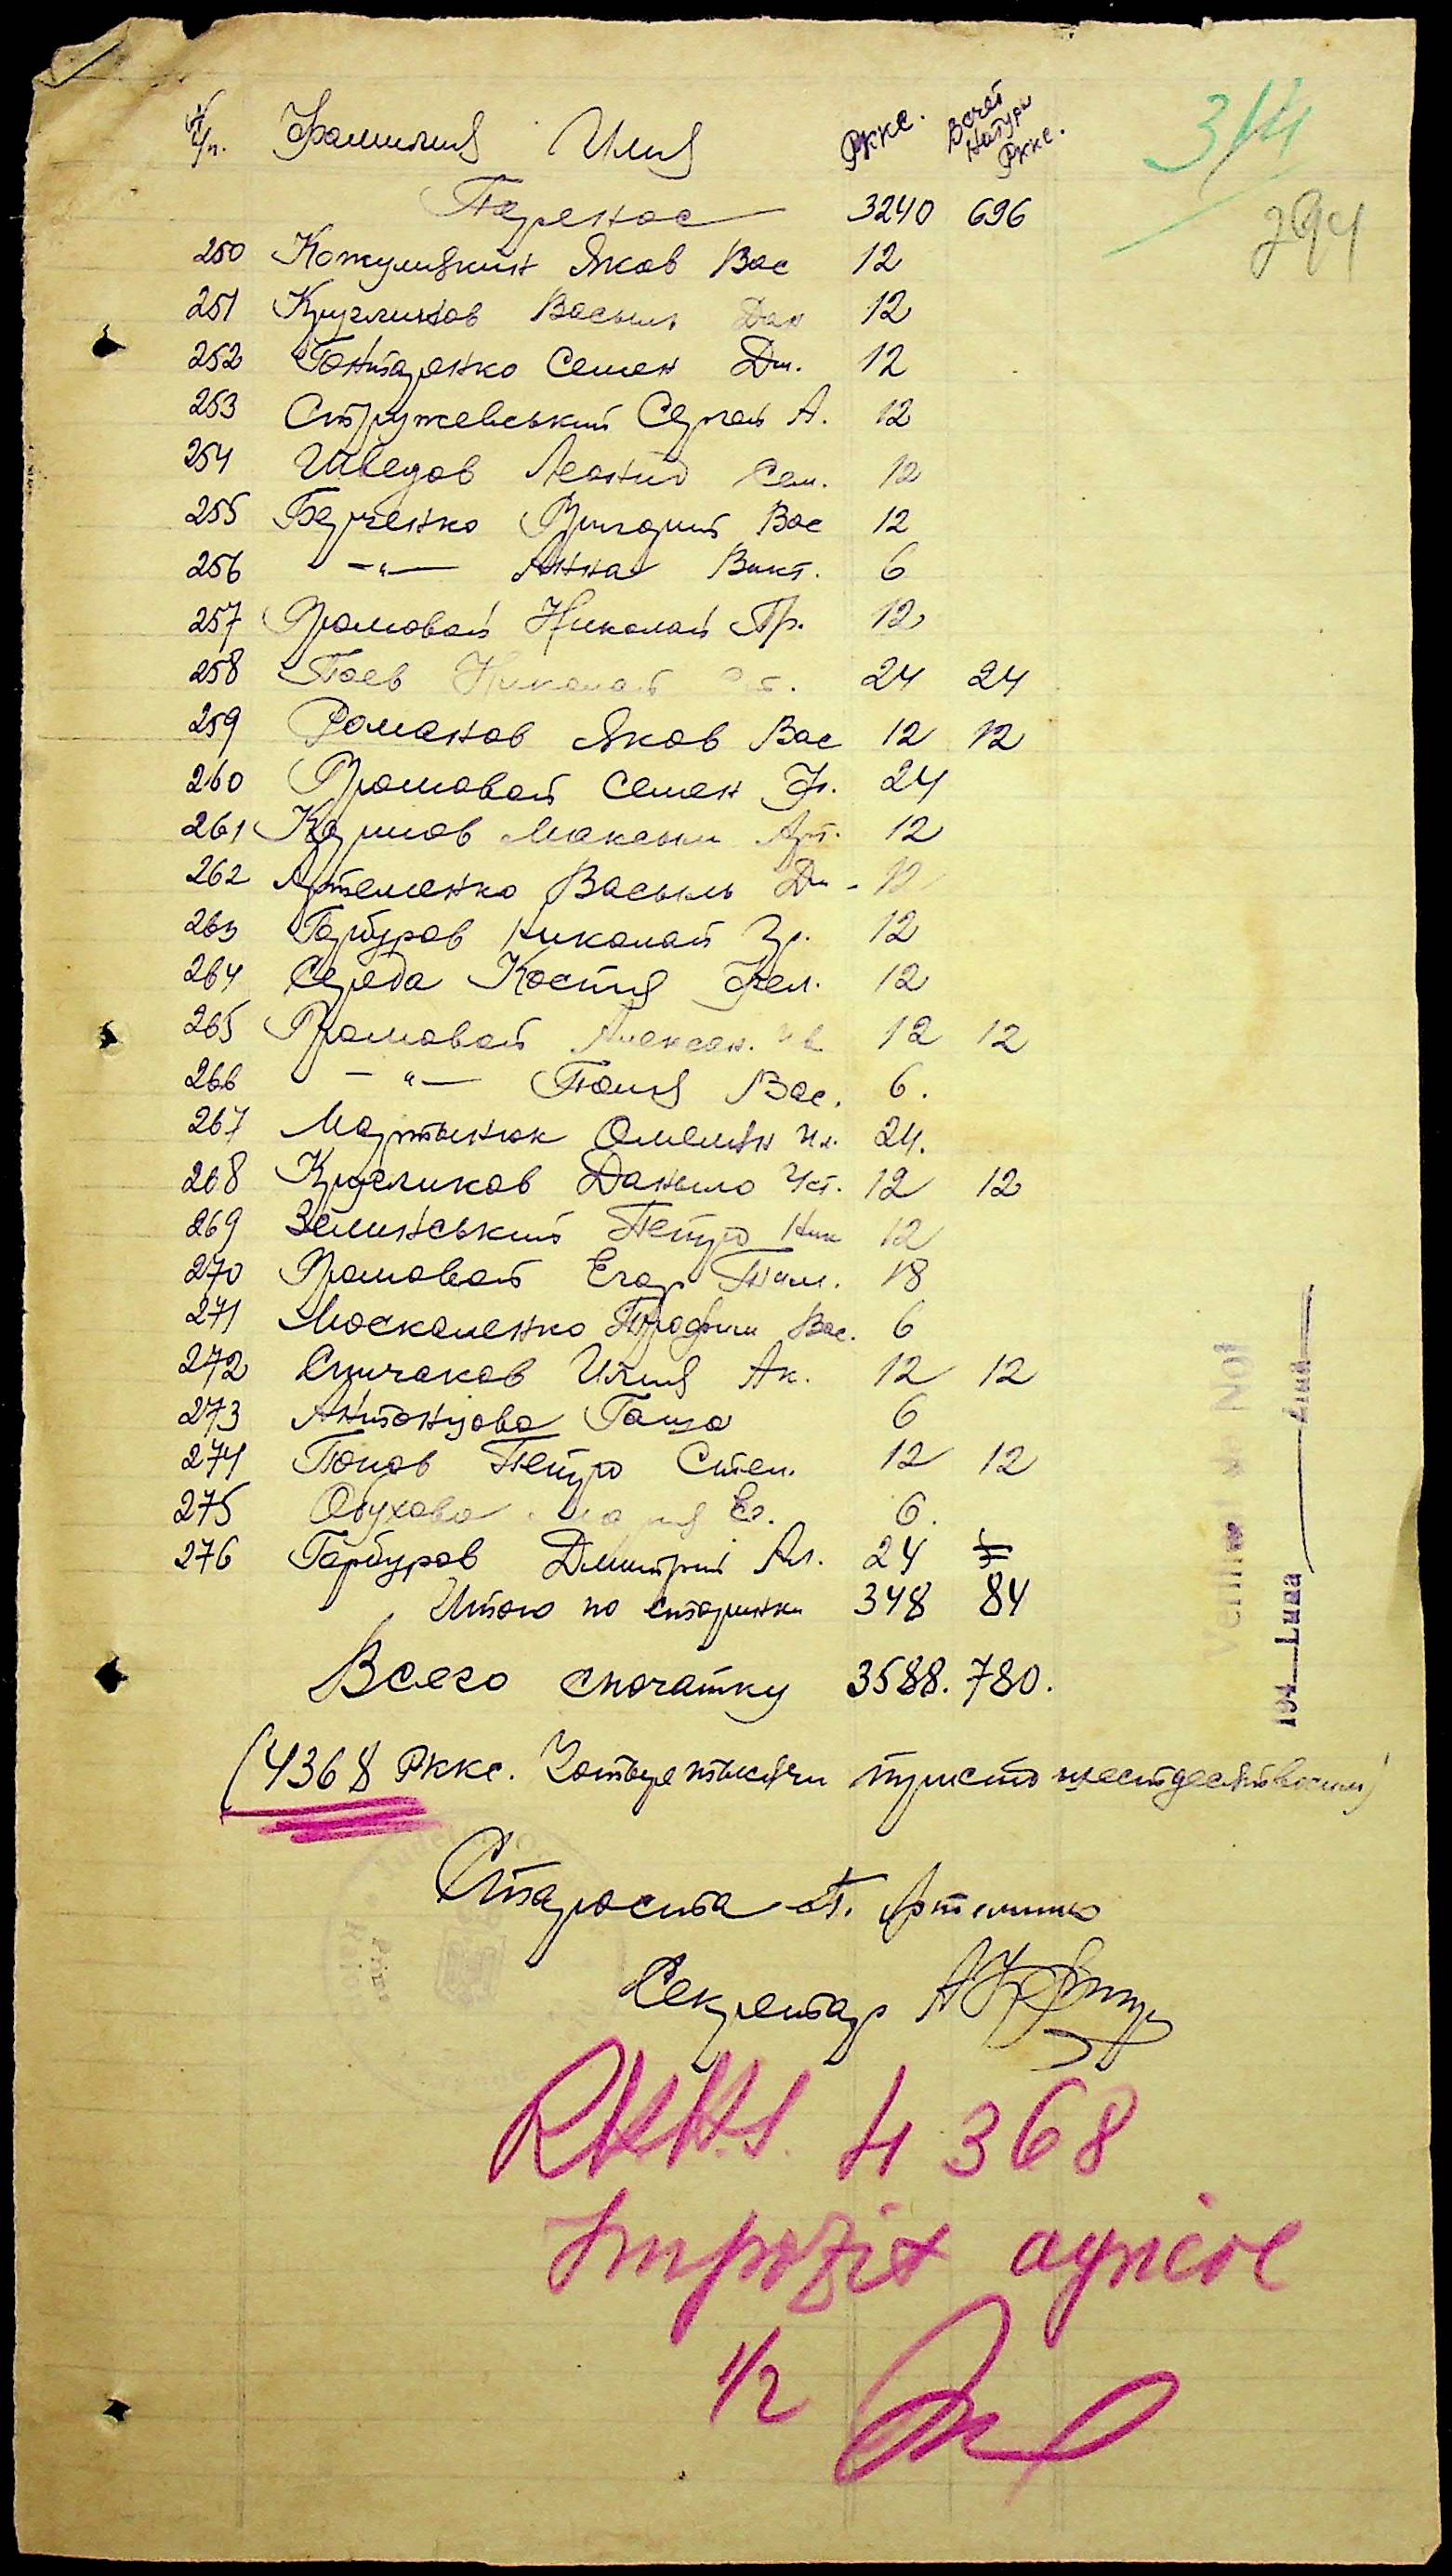 № п/п. Фамилия Имя Ркке. В счет Натури Ркке.
314
294
Перенос 3240 696
250 Кожулявкин Яков Вас 12
251 Кругликов Василь Дан 12
252 Гонтаренко Семен Дм. 12
253 Стружевський Сергей А. 12
254 Шведов Леонид Сем. 12
255 Берченко Григорий Вас 12
256 —"— Анна Викт. 6
257 Громовой Николай Пр. 12
258 Паев Николай 24 24
259 Романов Яков Вас 12 12
260 Громовой Семен Гр. 24
261 Карпов Максим Арт. 12
262 Артеменко Василь Дм. 12
263 Гарбузов Николай Гр. 12
264 Середа Костя Фел. 12
265 Громовой Алексан. Ив 12 12
266 —"— Таня Вас. 6.
267 Мартынюк Омелян Ил. 24.
268 Кругликов Даныло Уст. 12 12
269 Зелинський Петро Ник 12
270 Громовой Егор Тим. 18
271 Москаленко Трофим Вас. 6
272 Спичаков Илия Ак. 12 12
273 Антонцова Ганя 6
274 Попов Петро Степ. 12 12
275 Обухова Мария Ег. 6.
276 Гарбузов Дмитрий Ал. 24
Итого по сторинки 348 84
Всего спочатку 3588. 780.
(4368 Ркке. Чотыре тысячи триста шестдесят восим)
Староста П. Артеменко
Секретар
RKKS. 4 368
Impozit agricol
1/2
194 Luna Ziua